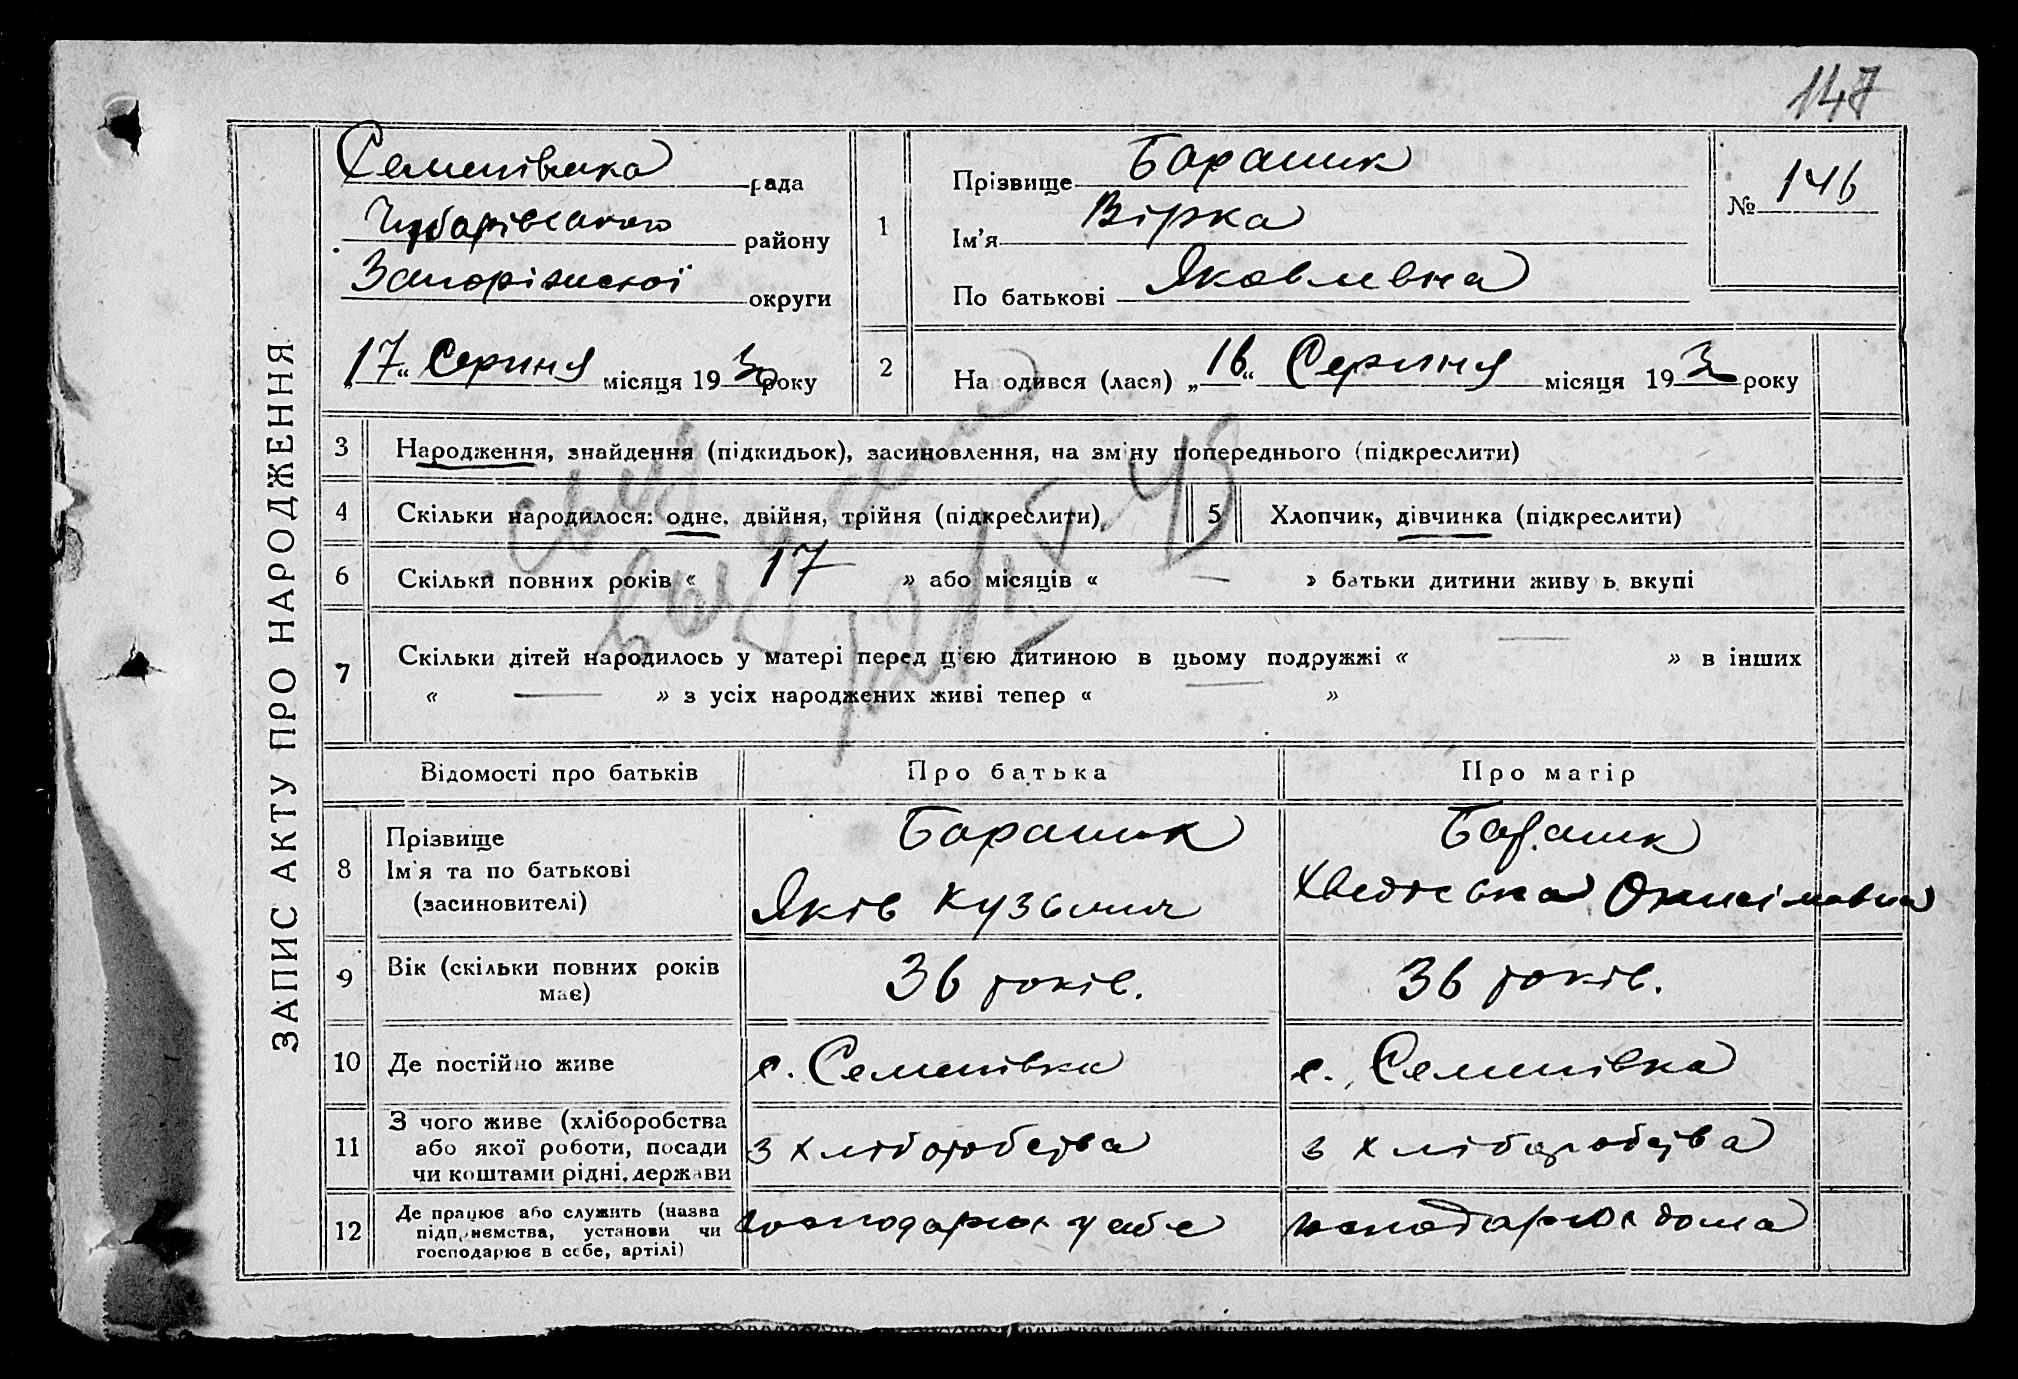 147
ЗАПИС АКТУ ПРО НАРОДЖЕННЯ
Семенівська рада
Чубарівського району
Запорізької округи
„17“ Серпня місяця 1930 року
1
Прізвище Барашик
Ім'я Вірка
По батькові Яковлевна
№ 146
2 На одився (лася) „16“ Серпня місяця 193 року
3 Народження, знайдення (підкидьок), засиновлення, на зміну попереднього (підкреслити)
4 Скільки народилося: одне, двійня, трійня (підкреслити)
5 Хлопчик, дівчинка (підкреслити)
6 Скільки повних років « 17 » або місяців « — » батьки дитини живу ь вкупі
7 Скільки дітей народилось у матері перед цією дитиною в цьому подружжі « — » в інших
« — » з усіх народжених живі тепер « — »
Відомості про батьків Про батька Про матір
8 Прізвище
Ім'я та по батькові
(засиновителі)
Барашик
Яків Кузьмич
Барашик
Хведоська Онисімовна
9 Вік (скільки повних років має)
36 років.
36 років.
10 Де постійно живе
с. Семенівка
с. Семенівка
11 З чого живе (хліборобства
або якої роботи, посади
чи коштами рідні, держави
з хліборобства
з хліборобства
12 Де працює або служить (назва
підприємства, установи чи
господарює в себе, артілі)
господарює у себе
господарює дома